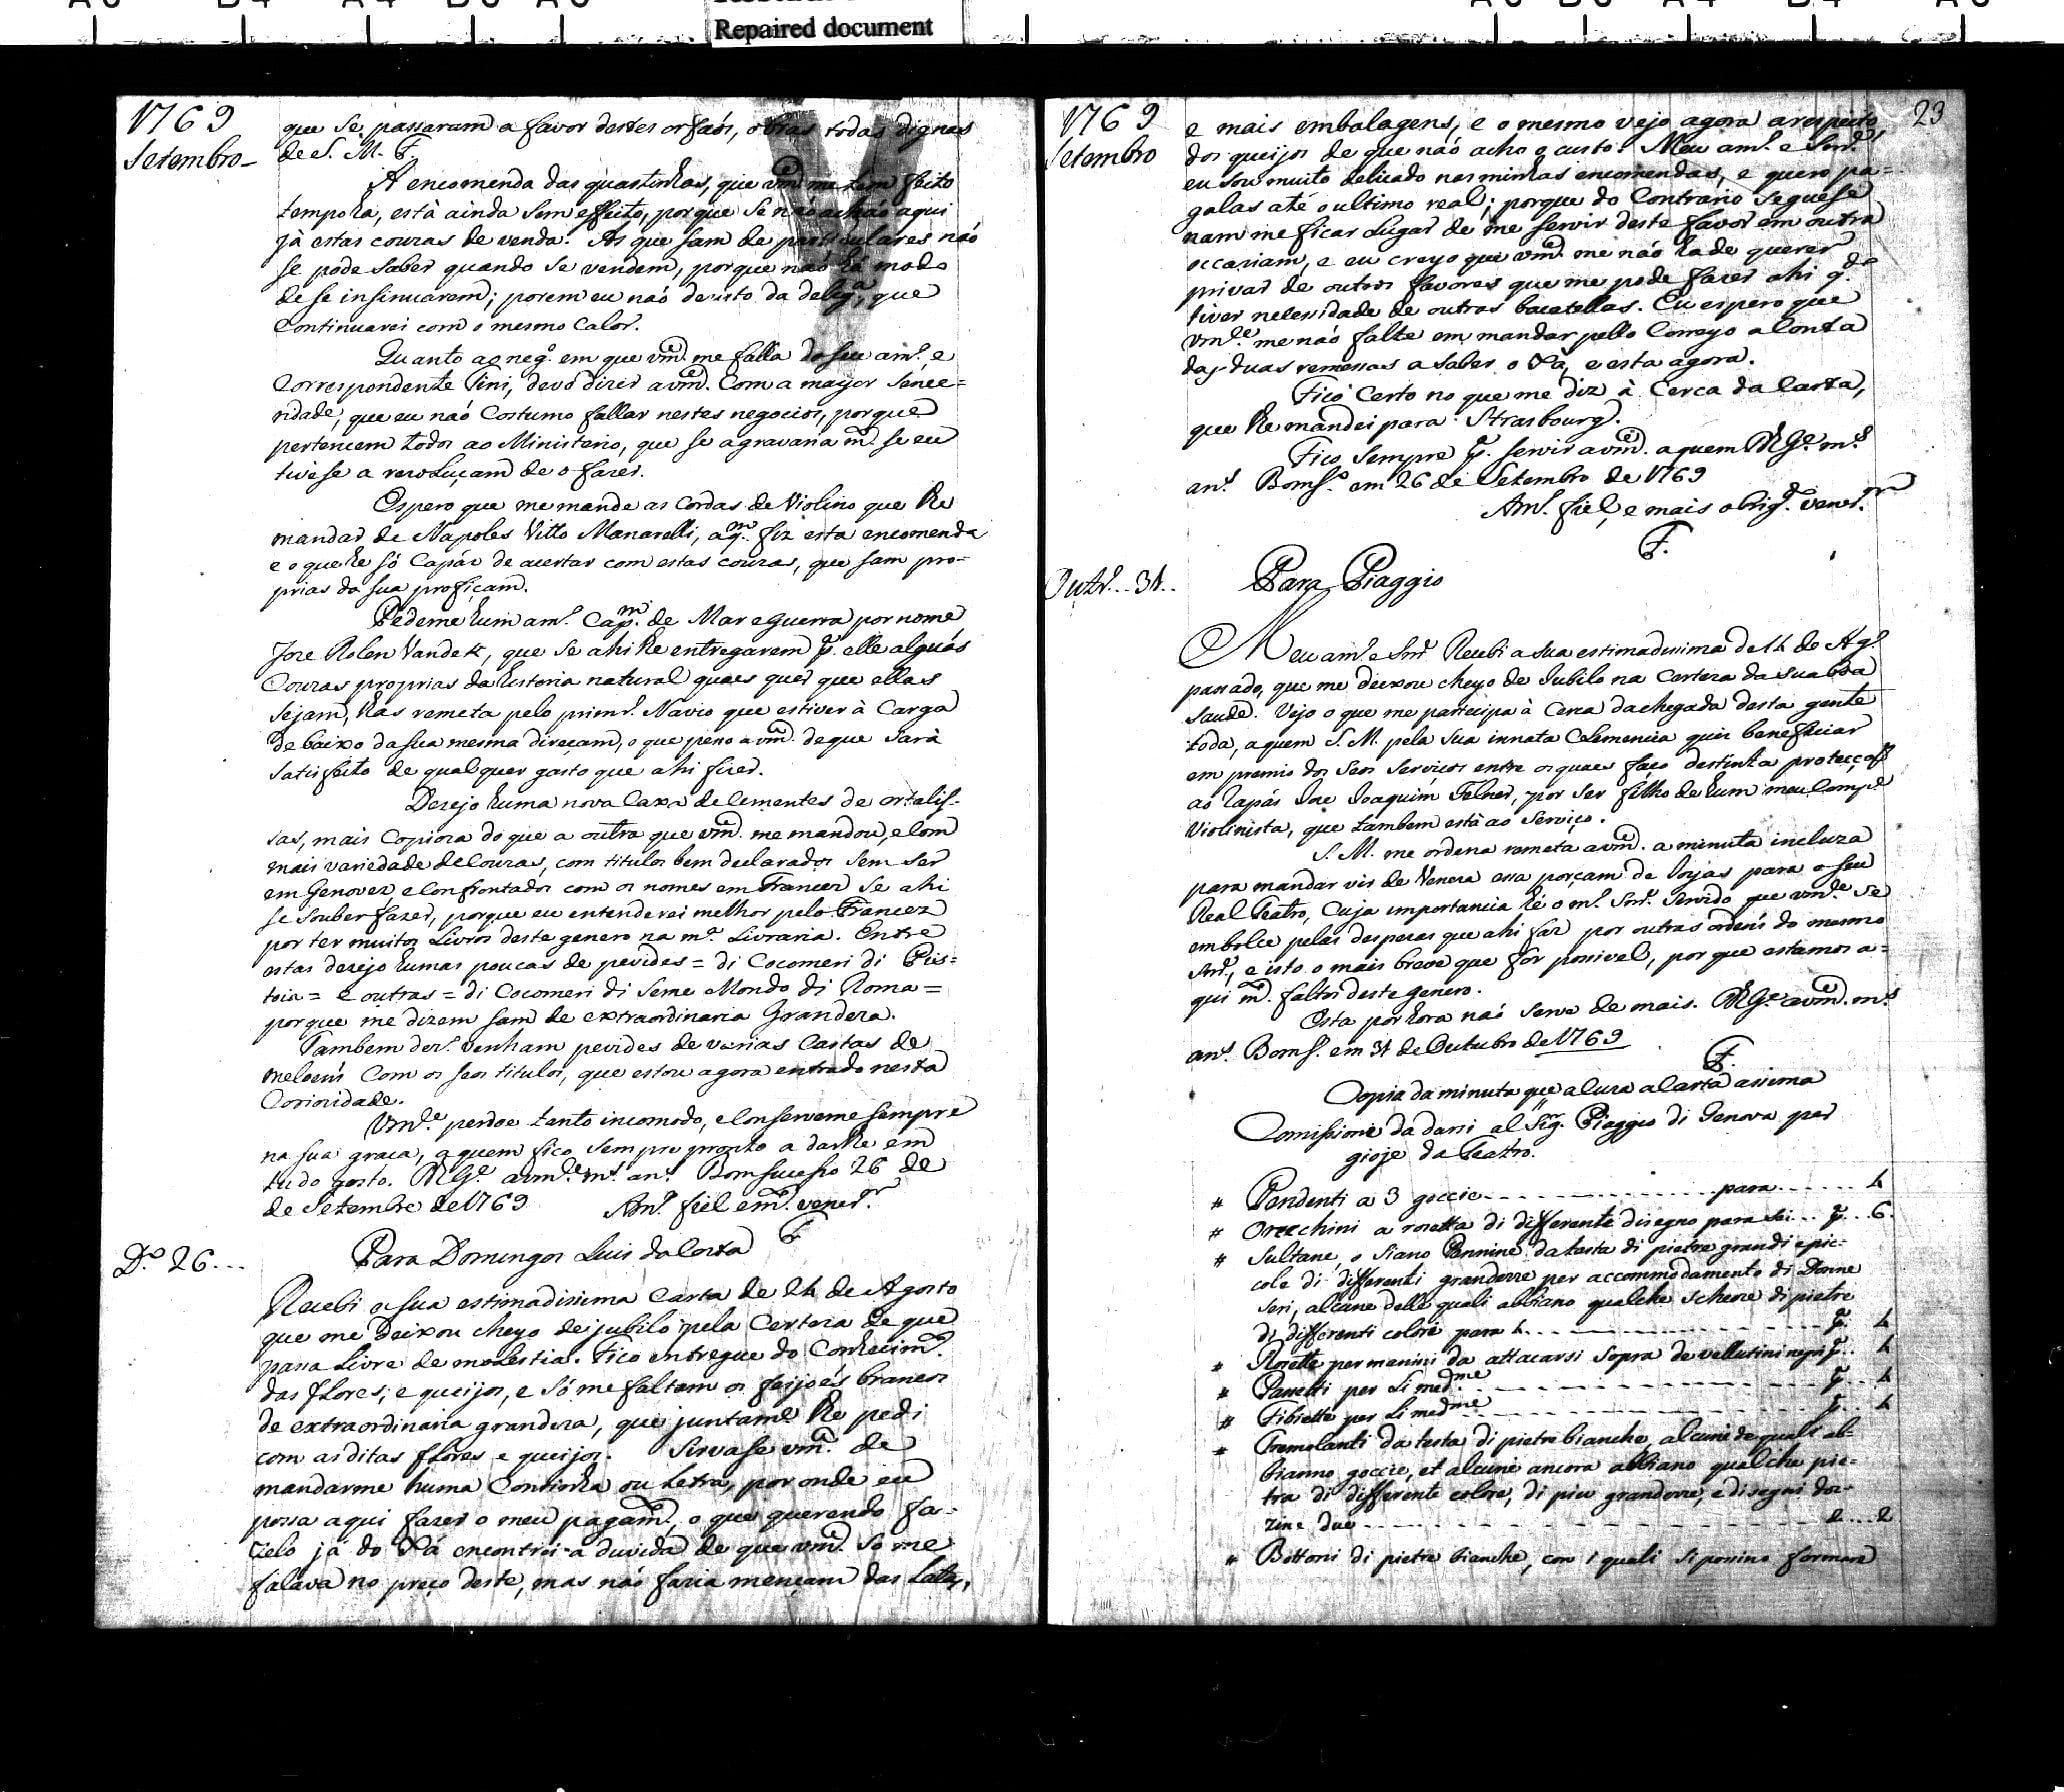 Repaired document
1769
Setembro_
que se passaram a favor destes orfaós, obras todas dignas
de S. M. F.
A encomenda das quartinhas, que vm.ce me tem feito
tempo ha, está ainda sem effeito, porque se não achão aqui
já estas couzas de venda. As que sam de particulares naó
se pode saber quando se vendem, porque naó há modo
de se insinuarem; porem eu naó dezisto da delig.a, que
continuarei com o mesmo calor.
Quanto ao neg.o em que vm.ce me falla do seu am.o e
Correspondente Tini, devo dizer a vm.ce Com a mayor sence=
ridade, que eu naó Costumo fallar nestes negocios, porque
pertencem todos ao Ministerio, que se agravaria m.to se eu
tivese a rezoluçam de o fazer.
Espero que me mande as Cordas de Violino que lhe
mandar de Napoles Vitto Manarelli, a q.m fiz esta encomenda
e o que he só Capáz de acertar com estas couzas, que sam pro=
prias da sua profiçam.
Pedeme hum am.o Cap.m de Mar e Guerra por nome
Joze Rolen Vandek, que se ahi lhe entregarem p.a elle alguás
Couzas proprias da historia natural quaes quer que ellas
sejam, has remeta pelo primr.o Navio que estiver à Carga
debaixo da sua mesma direçam, o que peso a vm.ce de que sarà
satisfeito de qualquer gasto que ahi fizer.
Dezejo huma nova Caxa de Cementes de ortalis-
sas, mais Copioza do que a outra que vm.ce me mandou, e Com
mais variedade de Couzas, com titulos bem declarados sem ser
em Genovez e Confrontados com os nomes em Francez se ahi
se souber fazer, porque eu entenderei melhor pelo Francez
por ter muitos Livros deste genero na m.a Livraria. Entre
estas dezejo humas poucas de pevides = di Cocomeri di Pis=
toia = e outras = di Cocomeri di seme Mondo di Roma =
porque me dizem sam de extraordinaria Grandeza.
Tambem dez.o venham pevides de varias Castas de
meloeñs Com os seos titulos, que estou agora entrado nesta
Coriozidade.
Vm.ce perdoe tanto incomodo, e Conserveme sempre
na sua graca, a quem fico sempre pronto a darlhe em
tudo gosto. D.s G.e a vm.ce m.s an.s Bomsucesso 26 de
de Setembro de 1769 Am.o fiel e m.to vener.or
F.
D.o 26...
Para Domingos Luis da Costa
Recebi a sua estimadissima Carta de 24 de Agosto
que me deixou cheyo de jubilo pela Certeza de que
passa Livre de molestia. Fico entregue do Conhecim.to
das flores, e queijos, e só me faltam os feijoés brancos
de extraordinaria grandeza, que juntam.te lhe pedi
com as ditas flores e queijos. Sirvase vm.ce de
mandarme huma Continha ou Letra, por onde eu
possa aqui fazer o meu pagam.to, o que querendo fa=
zelo já do Xá encontrei a duvida de que vm.ce só me
falava no preço deste, mas naó fazia mençam das Latas,
1769
Setembro
23
e mais embalagens, e o mesmo vejo agora a respeito
dos queijos de que naó acho o custo. Meu am.o e Snr.
eu sou muito delicado nas minhas encomendas, e quero pa=
galas até o ultimo real; porque do Contrario seguese
nam me ficar Lugar de me servir deste favor em outra
occaziam, e eu creyo que vm.ce me naó hade querer
privar de outros favores que me pode fazer ahi q.do
tiver necessidade de outras bacatellas. Eu espero que
vm.ce me naó falte em mandar pello Correyo a Conta
das duas remessas a saber o Xá, e esta agora.
Fico Certo no que me diz à Cerca da Carta,
que lhe mandei para Strasbourg.
Fico sempre p.a servir a vm.ce a quem D.s G.e m.s
an.s Boms.o em 26 de Setembro de 1769
Am.o fiel, e mais obrig.do vener.or
F.
Outr.o..31..
Para Piaggio
Meu am.o e Snr. Recebi a sua estimadissima de 14 de Ag.o
passado, que me deixou cheyo de Jubilo na Certeza da sua boa
saude. Vejo o que me participa à Cerca da chegada desta gente
toda, a quem S. M. pela sua innata Celemencia quis beneficiar
em premio dos seos Serviços entre os quaes faço destinta protecçaó
ao Rapás Joze Joaquim Felner, por ser filho de hum meu Comp.o
Violinista, que tambem està ao Serviço.
S. M. me ordena remeta a vm.ce a minuta incluza
para mandar vir de Veneza essa porçam de Joyas para o seu
Real Teatro, Cuja importancia hé o m.o Snr. Servido que vm.ce se
embolce pelas despezas que ahi faz por outras ordeñs do mesmo
Snr., e isto o mais breve que for possivel, por que estamos a=
qui m.to faltos deste genero.
Esta por hora naó serve de mais. D.s G.e a vm.ce m.s
an.s Boms.o em 31 de Outubro de 1769
F.
Copia da minuta que acuza a Carta assima
Comissione da darsi al Sig.r Piaggio di Genova per
gioje da Teatro.
# Pendenti a 3 goccie..........para......4
# Orecchini a rosetta di differente disegno para sei...p.a..6.
# Sultane, o siano Pennine da testa di pietre grandi e pic=
cole di differenti grandezze per accommodamento di Donne
seri, alcune delle quali abbiano qualche scherze di pietre
di differenti colori para 4..........p.a 4
# Rosette per manini da attacarsi sopra de vellutini negri p.a..4
# Passetti per li med.me..........p.a..4
# Fibiette per li med.me..........p.a..4
# Tremolanti da testa di pietre bianche, alcuni de quali ab=
bianno goccie, et alcuni ancora abbiano qualche pie=
tra di differente colore, di piu grandezze, e disegni doz=
zine due..........2...2
# Bottoni di pietre bianche, con i quali si possino formare